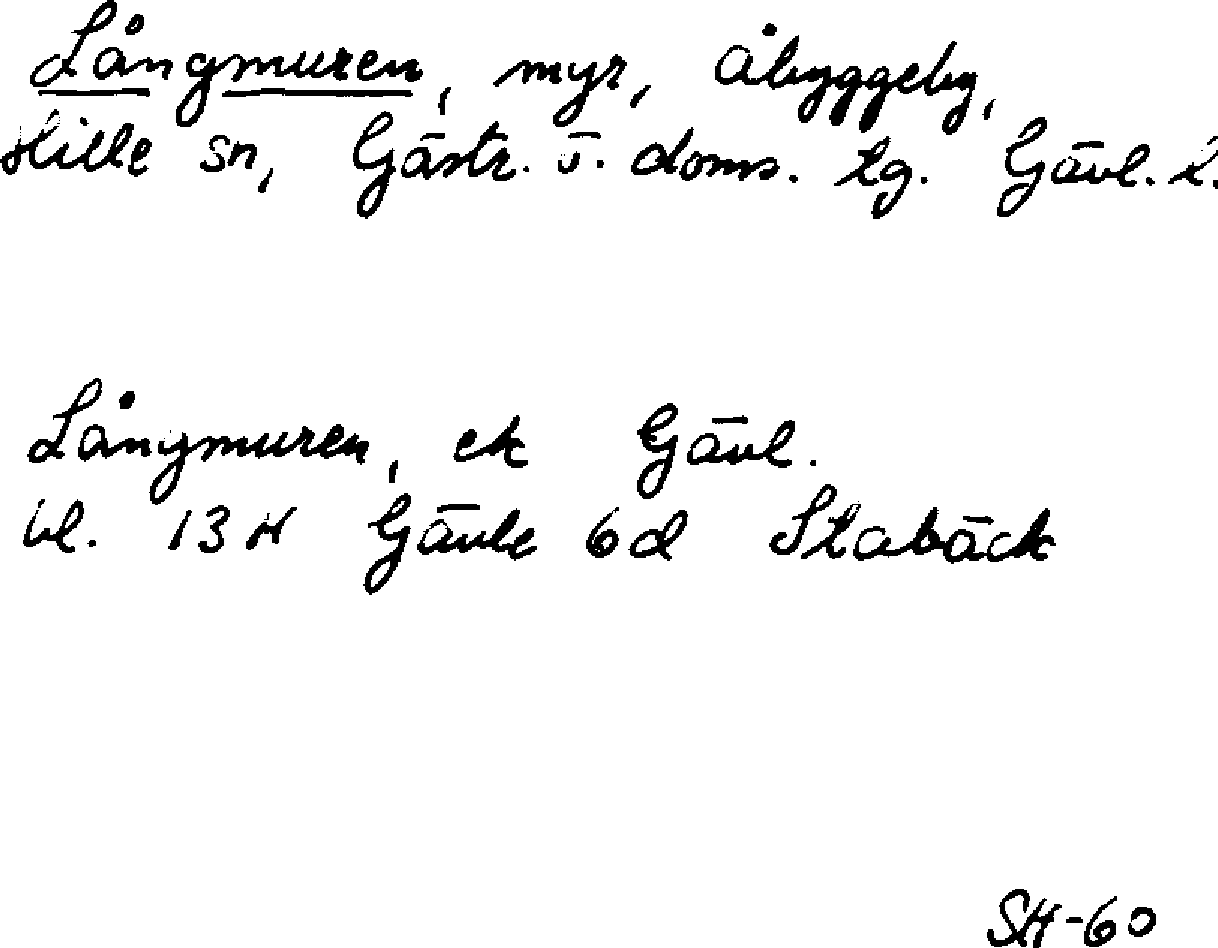 Långmuren, myr, Åbyggeby,
Hille sn, Gästr. ö. doms. tg. Gävl. l.
Långmuren, ek Gävl.
bl. 13 H Gävle 6d Stabäck
SH-60